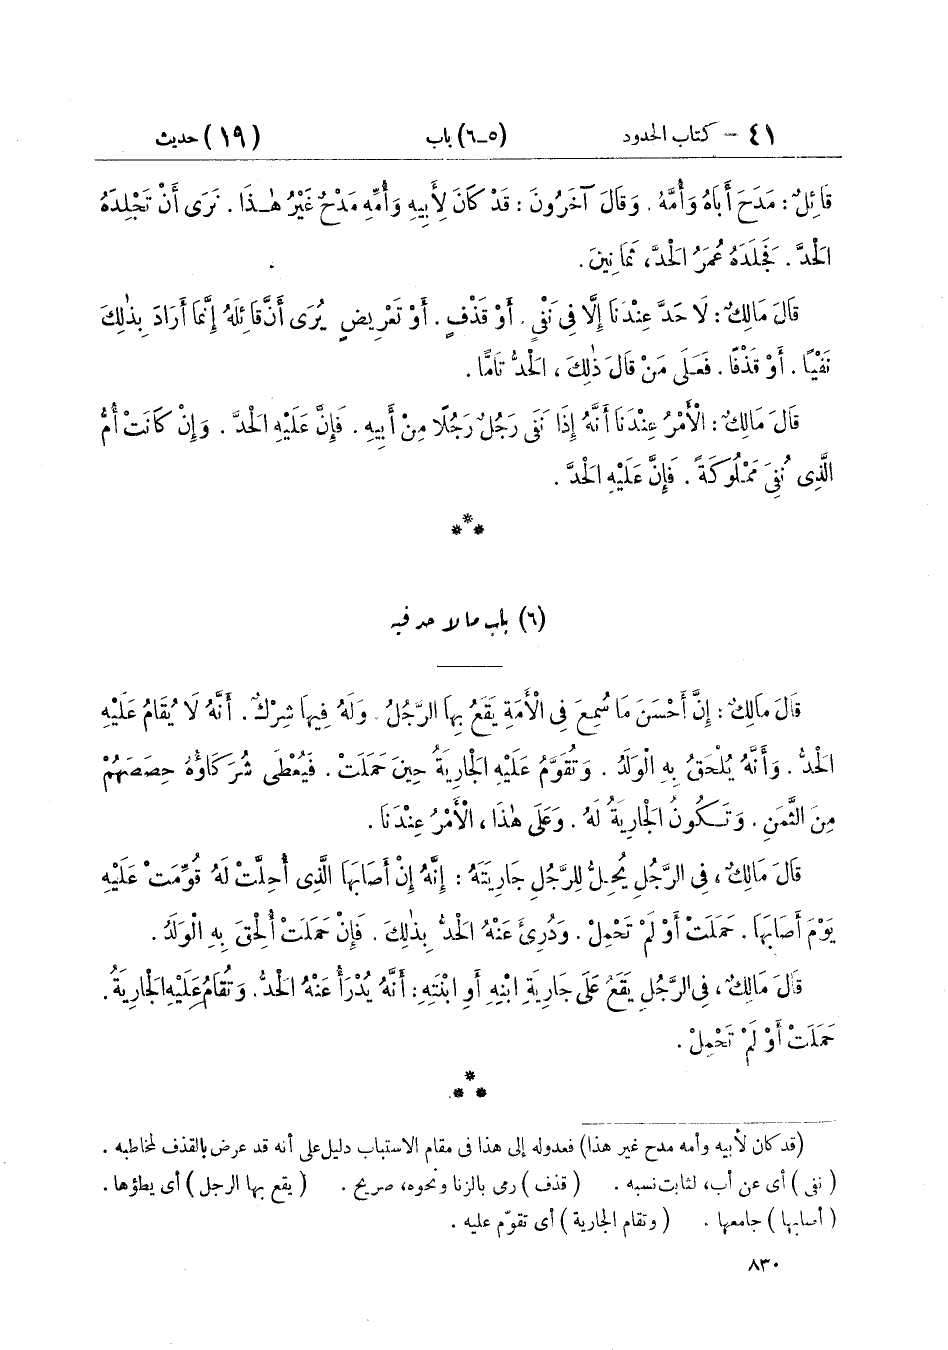 ٤١ – كتاب الحدود (٥-٦) باب (١٩) حديث
قَائِلٌ : مَدَحَ أَبَاهُ وَأُمَّهُ . وَقَالَ آخَرُونَ : قَدْ كَانَ لِأَبِيهِ وَأُمِّهِ مَدْحٌ غَيْرُ هٰذَا . نَرَى أَنْ تَجْلِدَهُ
الْحَدَّ . فَجَلَدَهُ عُمَرُ الْحَدَّ ، ثَمَانِينَ .
قَالَ مَالِكٌ : لَا حَدَّ عِنْدَنَا إِلَّا فِى نَفْىٍ . أَوْ قَذْفٍ . أَوْ تَعْرِيضٍ يُرَى أَنَّ قَائِلَهُ إِنَّمَا أَرَادَ بِذٰلِكَ
نَفْيًا . أَوْ قَذْفًا . فَعَلَى مَنْ قَالَ ذٰلِكَ ، الْحَدُّ تَامًّا .
قَالَ مَالِكٌ : الْأَمْرُ عِنْدَنَا أَنَّهُ إِذَا نَفَى رَجُلٌ رَجُلًا مِنْ أَبِيهِ . فَإِنَّ عَلَيْهِ الْحَدَّ . وَإِنْ كَانَتْ أُمُّ
الَّذِى نُفِىَ مَمْلُوكَةً . فَإِنَّ عَلَيْهِ الْحَدَّ .
***
(٦) باب ما لا حد فيه
قَالَ مَالِكٌ : إِنَّ أَحْسَنَ مَا سُمِعَ فِى الْأَمَةِ يَقَعُ بِهَا الرَّجُلُ . وَلَهُ فِيهَا شِرْكٌ . أَنَّهُ لَا يُقَامُ عَلَيْهِ
الْحَدُّ . وَأَنَّهُ يُلْحَقُ بِهِ الْوَلَدُ . وَتُقَوَّمُ عَلَيْهِ الْجَارِيَةُ حِينَ حَمَلَتْ . فَيُعْطَى شُرَكَاؤُهُ حِصَصَهُمْ
مِنَ الثَّمَنِ . وَتَكُونُ الْجَارِيَةُ لَهُ . وَعَلَى هٰذَا ، الْأَمْرُ عِنْدَنَا .
قَالَ مَالِكٌ ، فِى الرَّجُلِ يُحِلُّ لِلرَّجُلِ جَارِيَتَهُ : إِنَّهُ إِنْ أَصَابَهَا الَّذِى أُحِلَّتْ لَهُ قُوِّمَتْ عَلَيْهِ
يَوْمَ أَصَابَهَا . حَمَلَتْ أَوْ لَمْ تَحْمِلْ . وَدُرِئَ عَنْهُ الْحَدُّ بِذٰلِكَ . فَإِنْ حَمَلَتْ أُلْحِقَ بِهِ الْوَلَدُ .
قَالَ مَالِكٌ ، فِى الرَّجُلِ يَقَعُ عَلَى جَارِيَةِ ابْنِهِ أَوِ ابْنَتِهِ : أَنَّهُ يُدْرَأُ عَنْهُ الْحَدُّ . وَتُقَامُ عَلَيْهِ الْجَارِيَةُ .
حَمَلَتْ أَوْ لَمْ تَحْمِلْ .
***
(قد كان لأبيه وأمه مدح غير هذا) فعدوله إلى هذا فى مقام الاستباب دليل على أنه قد عرض بالقذف لمخاطبه .
( نفى ) أى عن أب، لثابت نسبه . ( قذف ) رمى بالزنا ونحوه، صريح . ( يقع بها الرجل ) أى يطؤها .
( أصابها ) جامعها . ( وتقام الجارية ) أى تقوّم عليه .
٨٣٠